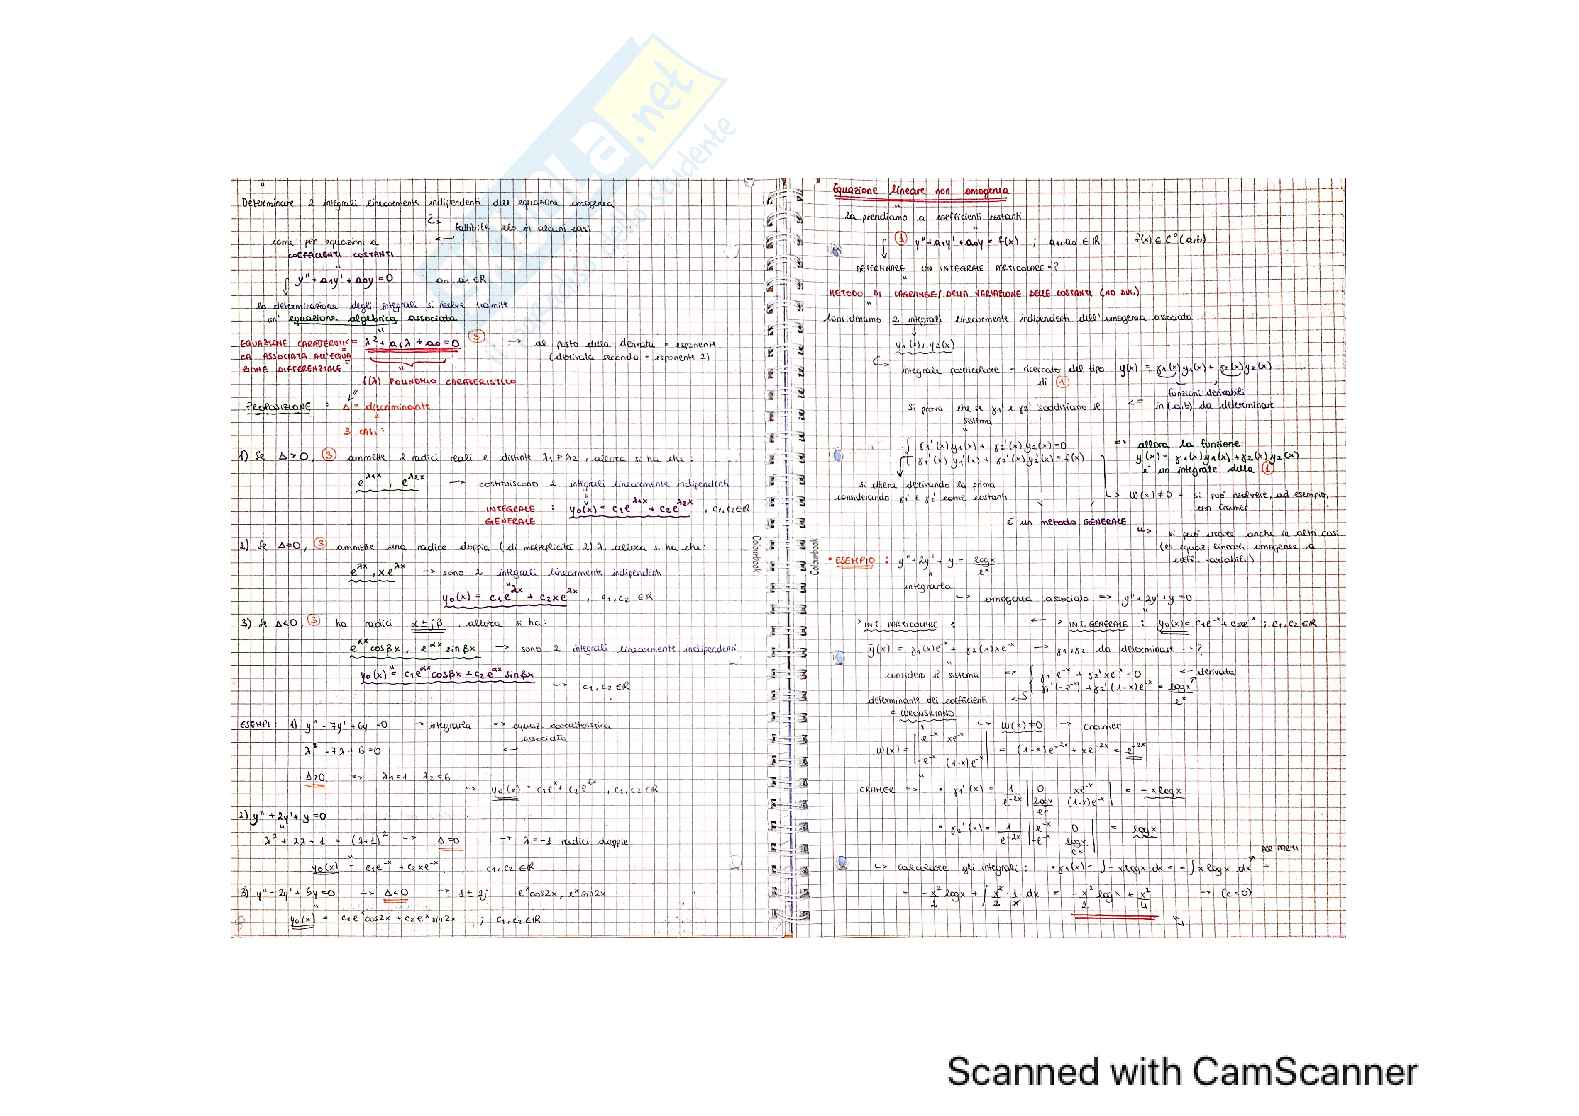 Determinare 2 integrali linearmente indipendenti dell'equazione omogenea
fattibile solo in alcuni casi
come per equazioni a
COEFFICIENTI COSTANTI
y'' + a₁y' + a₀y = 0 a₁, a₀ ∈ ℝ
la determinazione degli integrali si risolve tramite
un' equazione algebrica associata
EQUAZIONE CARATTERISTI= λ² + a₁λ + a₀ = 0 ③ → al posto della derivata = esponente
CA ASSOCIATA ALL'EQUA (derivata seconda = esponente 2)
ZIONE DIFFERENZIALE
f(λ) POLINOMIO CARATTERISTICO
PROPOSIZIONE : Δ = discriminante
3 casi:
1) Se Δ>0, ③ ammette 2 radici reali e distinte λ₁ ≠ λ₂, allora si ha che:
e^λ₁x , e^λ₂x → costituiscono 2 integrali linearmente indipendenti
INTEGRALE : y₀(x) = c₁e^λ₁x + c₂e^λ₂x , c₁, c₂ ∈ ℝ
GENERALE
2) Se Δ=0, ③ ammette una radice doppia (di molteplicità 2) λ, allora si ha che:
e^λx , xe^λx → sono 2 integrali linearmente indipendenti
y₀(x) = c₁e^λx + c₂xe^λx , c₁, c₂ ∈ ℝ
3) Se Δ<0, ③ ha radici α±jβ , allora si ha:
e^αx cosβx , e^αx sinβx → sono 2 integrali linearmente indipendenti
y₀(x) = c₁e^αx cosβx + c₂e^αx sinβx
→ c₁, c₂ ∈ ℝ
ESEMPI: 1) y'' - 7y' + 6y = 0 → integrarla → equaz. caratteristica
associata
λ² - 7λ + 6 = 0 ←
Δ>0 => λ₁=1 λ₂=6
→ y₀(x) = c₁e^x + c₂e^6x , c₁, c₂ ∈ ℝ
2) y'' + 2y' + y = 0
λ² + 2λ + 1 = (λ+1)² → Δ=0 → λ=-1 radici doppie
y₀(x) = c₁e^-x + c₂xe^-x , c₁, c₂ ∈ ℝ
3) y'' - 2y' + 5y = 0 → Δ<0 → 1 ± 2j e^x cos2x, e^x sin2x
y₀(x) = c₁e^x cos2x + c₂e^x sin2x ; c₁, c₂ ∈ ℝ
Colourbook
Equazione lineare non omogenea
la prendiamo a coefficienti costanti
① y'' + a₁y' + a₀y = f(x) ; a₁, a₀ ∈ ℝ f(x) ∈ C⁰(a,b)
DETERMINARE UN INTEGRALE PARTICOLARE = ?
METODO DI LAGRANGE / DELLA VARIAZIONE DELLE COSTANTI (NO DIM.)
Consideriamo 2 integrali linearmente indipendenti dell'omogenea associata
y₁(x), y₂(x)
integrale particolare = ricercato del tipo y(x) = γ₁(x)y₁(x) + γ₂(x)y₂(x)
di ①
funzioni derivabili
in (a,b) da determinare
Si prova che se γ₁ e γ₂ soddisfano il
sistema
γ₁'(x)y₁(x) + γ₂'(x)y₂(x) = 0 => allora la funzione
γ₁'(x)y₁'(x) + γ₂'(x)y₂'(x) = f(x) y(x) = γ₁(x)y₁(x) + γ₂(x)y₂(x)
è un integrale della ①
si ottiene derivando la prima
considerando γ₁' e γ₂' come costanti
W(x) ≠ 0 - si può risolvere, ad esempio,
con Cramer
È un metodo GENERALE
si può usare anche in altri casi
(es. equaz. lineari omogenee a
coeff. variabili)
Colourbook
• ESEMPIO : y'' + 2y' + y = logx / e^x
integrarla
→ omogenea associata => y'' + 2y' + y = 0
INT. PARTICOLARE : ← → INT. GENERALE : y₀(x) = c₁e^-x + c₂xe^-x ; c₁, c₂ ∈ ℝ
y(x) = γ₁(x)e^-x + γ₂(x)xe^-x → γ₁, γ₂ da determinare = ?
considero il sistema => γ₁'e^-x + γ₂'xe^-x = 0 ← derivata
γ₁'(-e^-x) + γ₂'(1-x)e^-x = logx / e^x
determinante dei coefficienti
è WRONSKIANO → W(x) ≠ 0 → Cramer
W(x) = | e^-x xe^-x | = (1-x)e^-2x + xe^-2x = e^-2x
| -e^-x (1-x)e^-x |
CRAMER => • γ₁'(x) = 1/e^-2x | 0 xe^-x | = -xlogx
| logx/e^x (1-x)e^-x |
• γ₂'(x) = 1/e^-2x | e^-x 0 | = logx
| -e^-x logx/e^x |
per parti
→ calcolare gli integrali: • γ₁(x) = ∫ -xlogx dx = -∫ x logx dx =
= -x²/2 logx + ∫ x²/2 · 1/x dx = -x²/2 logx + x²/4 → (c=0)
Skuola.net
Scanned with CamScanner